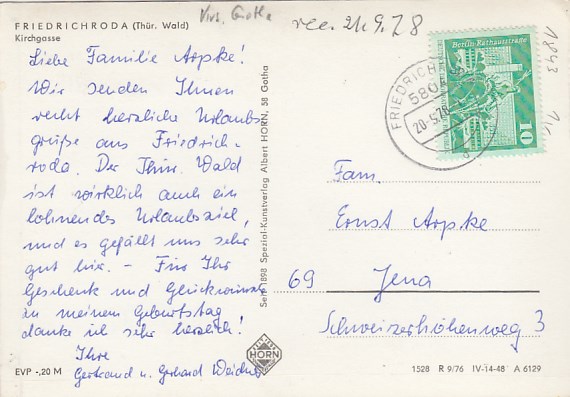 FRIEDRICHRODA (Thür. Wald)
Kirchgasse
rec. 21.9.78
1843
Liebe Familie Arpke!
Wir senden Ihnen
recht herzliche Urlaubs-
grüße aus Friedrich-
roda. Der Thür. Wald
ist wirklich auch ein
lohnendes Urlaubsziel,
und es gefällt uns sehr
gut hier. - Für Ihr
Geschenk und Glückwünsche
zu meinem Geburtstag
danke ich sehr herzlich!
Ihre
Gertraud u. Gerhard
EVP -,20 M
Serie 898 Spezial-Kunstverlag Albert HORN, 58 Gotha
HORN
FRIEDRICHRODA
5804
Berlin, Rathausstraße
10
Fam.
Ernst Arpke
69 Jena
Schweizerhöhenweg 3
1528 R 9/76 IV-14-48 A 6129